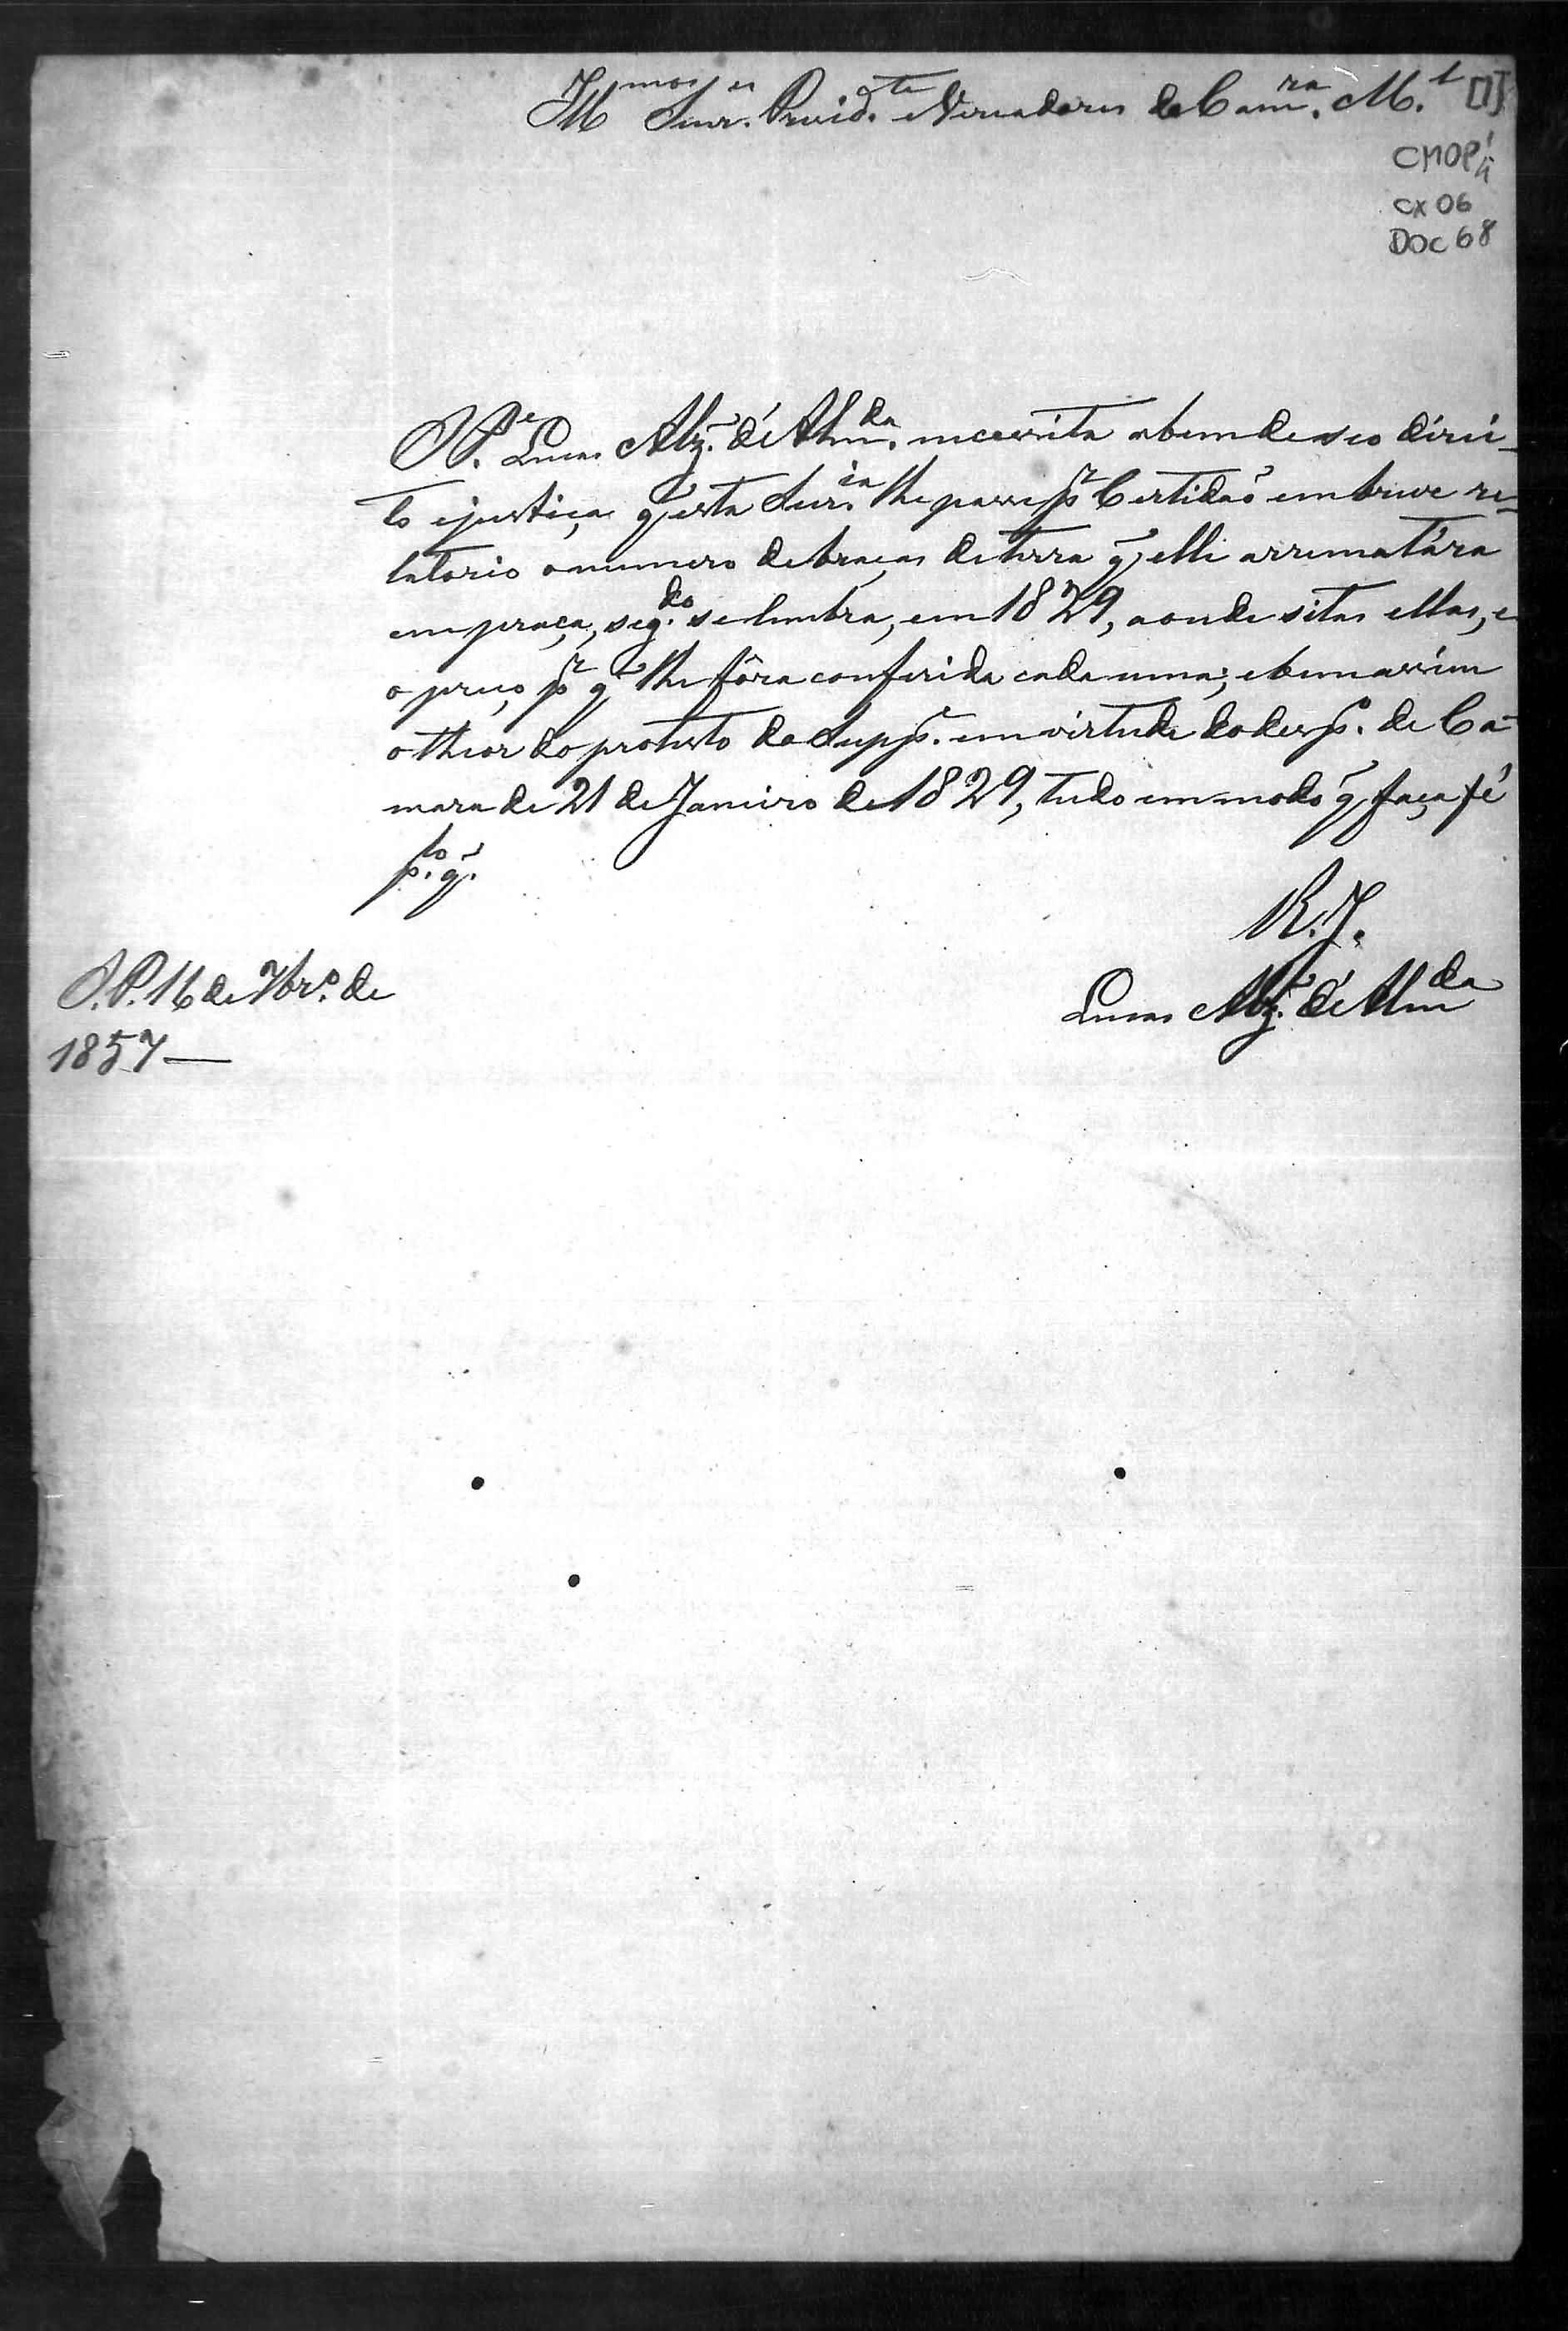 Illmos Snrs. Presid.te e Vereadores da Cam.ra M.l [1]
CMOP
cx 06
DOC 68
O P.e Lucas Alz'. d'Alm.da necessita abem de seo direi-
to ejustiça q' esta Secr.ia lhe passe p.r Certidaõ em breve re-
latorio o numero de braças de terra q' elle arrematára
em praça, seg.do se lembra, em 1829, aonde sitas ellas, e
o preço p.r q' lhe fôra conferida cada uma; e bem assim
o theor do protesto do Supp.e em virtude do desp.o da Ca-
mara de 21 de Janeiro de 1829, tudo em modo q' faça fé
p.to q'.
R. J.
O. P. 16 de 7br.o de
1857
Lucas Alz'. d'Alm.da